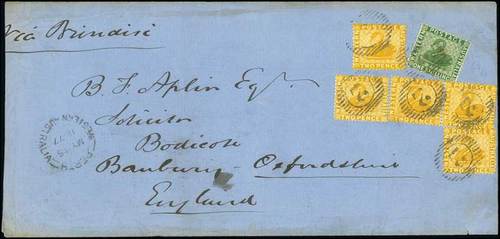 Via Brindisi
B. F. Aplin Esqr.
Solicitor
Bodicote
Banbury Oxfordshire
England
POSTAGE
TWO PENCE
POSTAGE
TWO PENCE
TWO PENCE
TWO PENCE
WESTERN AUSTRALIA